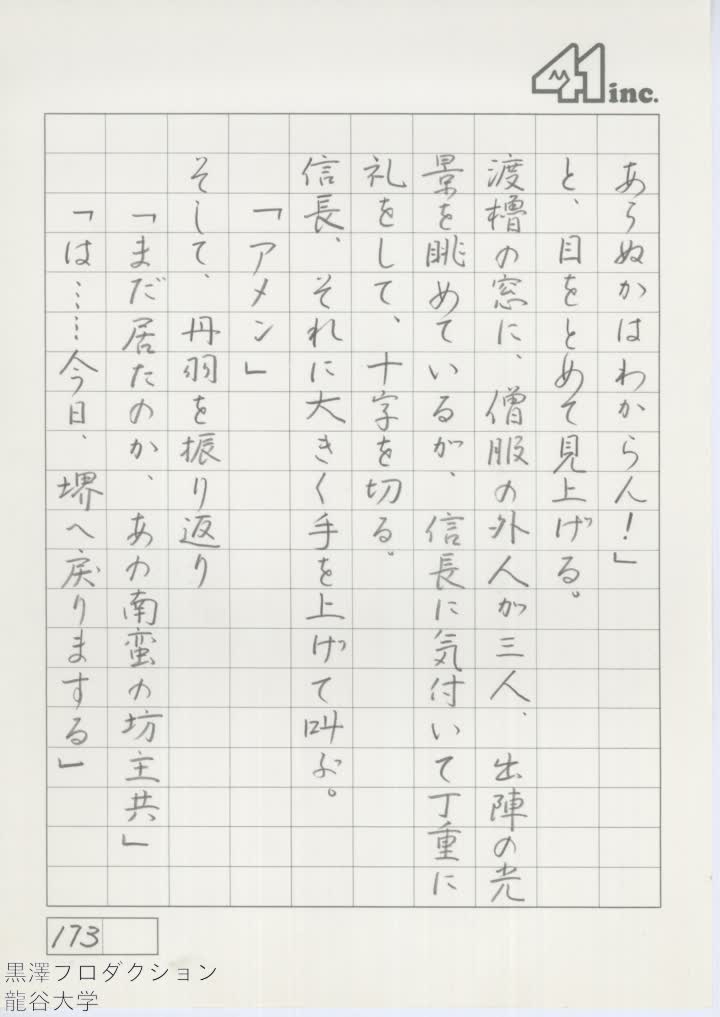 41 inc.
あらぬかはわからん！」
と、目をとめて見上げる。
渡櫓の窓に、僧服の外人が三人、出陣の光
景を眺めているが、信長に気付いて丁重に
礼をして、十字を切る。
信長、それに大きく手を上げて叫ぶ。
「アメン」
そして、丹羽を振り返り
「まだ居たのか、あの南蛮の坊主共」
「は……今日、堺へ戻りまする」
173
黒澤フロダクション
龍谷大学